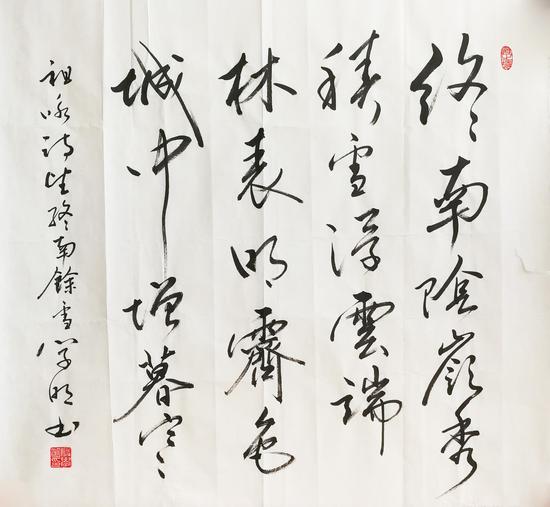 终南陰嶺秀
積雪浮雲端
林表明霽色
城中增暮寒
祖咏詩望終南餘雪學明书